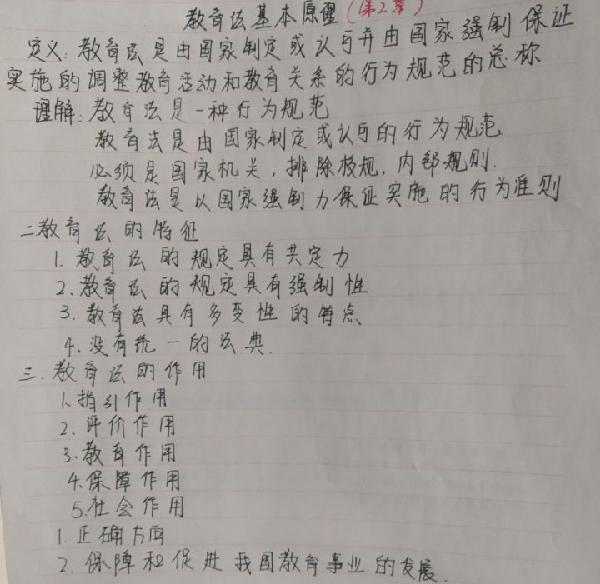 教育法基本原理(第2章)
定义:教育法是由国家制定或认可并由国家强制保证
实施的调整教育活动和教育关系的行为规范的总称
理解:教育法是一种行为规范
教育法是由国家制定或认可的行为规范
必须是国家机关,排除校规,内部规则.
教育法是以国家强制力保证实施的行为准则
二教育法的特征
1.教育法的规定具有共定力
2.教育法的规定具有强制性
3.教育法具有多变性的特点
4.没有统一的法典.
三.教育法的作用
1.指引作用
2.评价作用
3.教育作用
4.保障作用
5.社会作用
1.正确方向
2.保障和促进我国教育事业的发展.